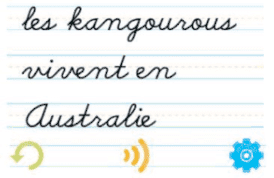 les kangourous
vivent en
Australie